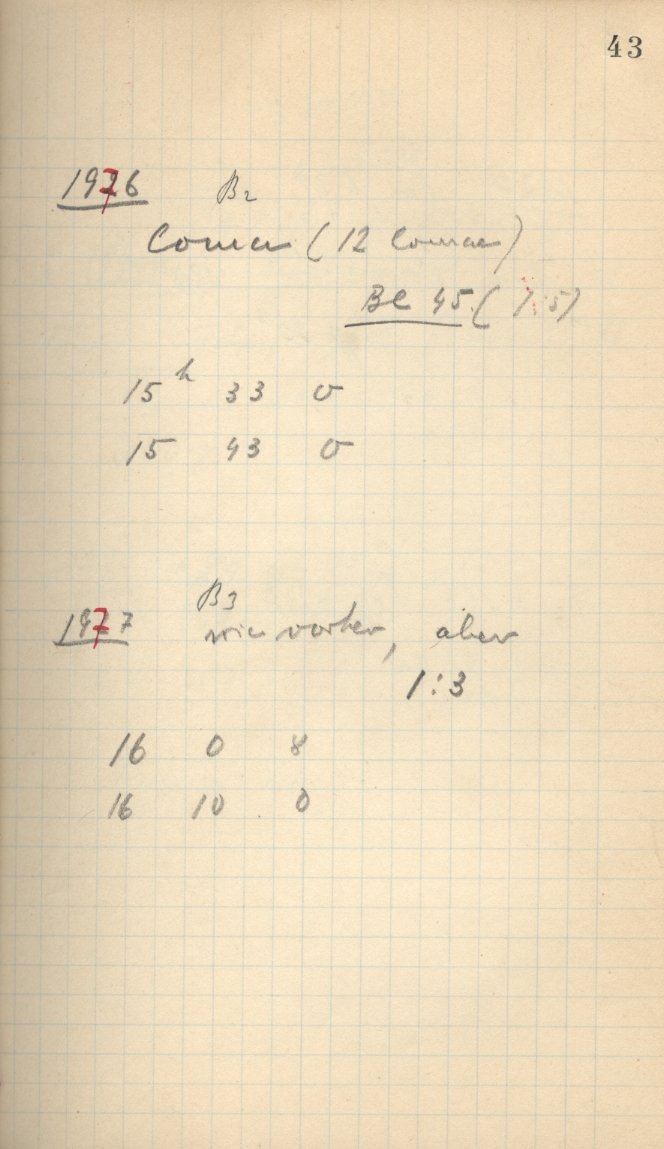 43
1976 B2
Coma (12 Comae)
Bl 45 (1:5)
15h 33 0
15 43 0
1977 B3
wie vorher, aber
1:3
16 0 8
16 10 0